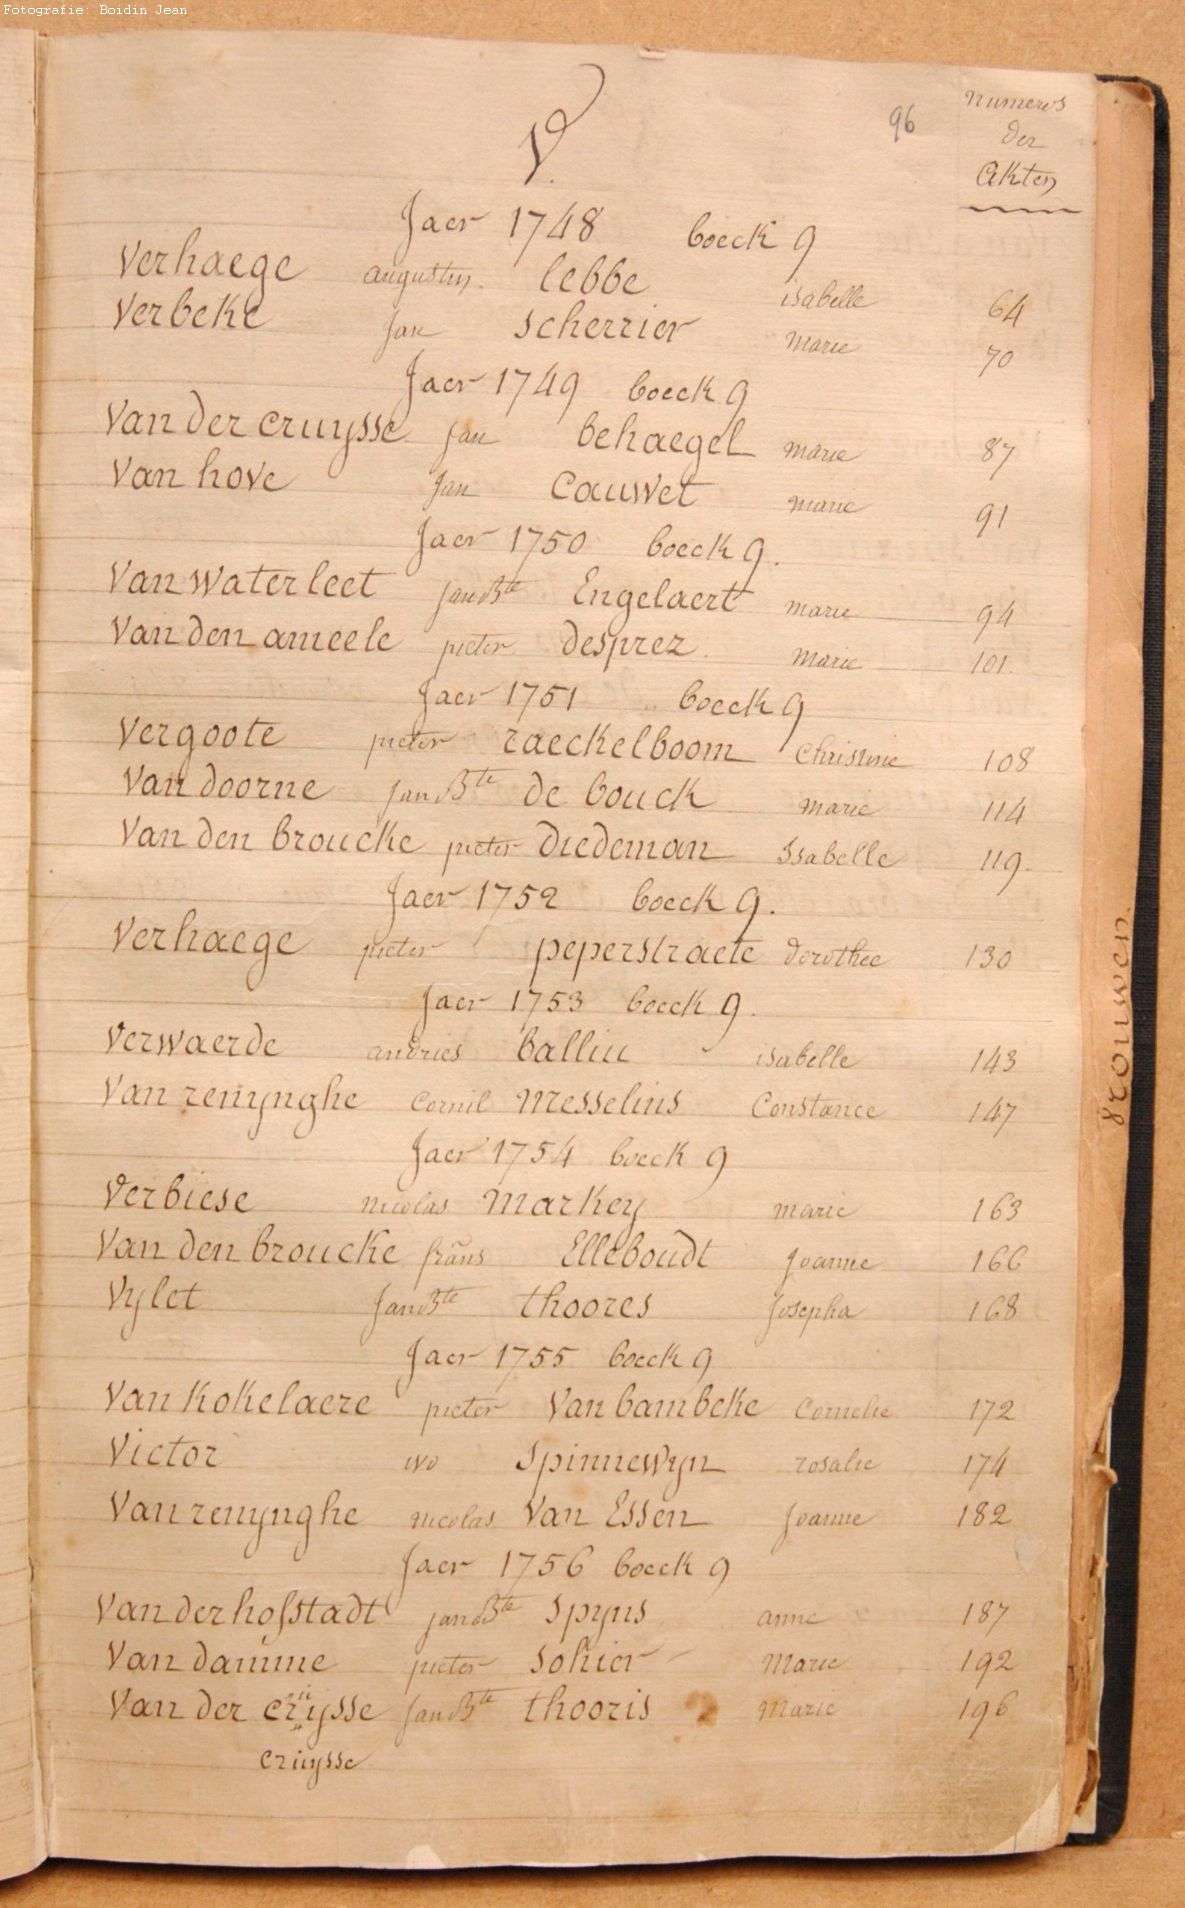 Fotografie: Boidin Jean
V.
96
Numeros
der
Akten
Jaer 1748 boeck 9
Verhaege augustyn. lebbe isabelle 64
Verbeke Jan scherrier marie 70
Jaer 1749 boeck 9
Van der cruysse Jan behaegel marie 87
Van hove Jan Cauwet marie 91
Jaer 1750 boeck 9.
Van Waterleet Jan Bte Engelaert marie 94
Van den ameele pieter desprez. marie 101.
Jaer 1751 boeck 9
Vergoote pieter raeckelboom Christine 108
Van doorne Jan Bte de bouck marie 114
Van den broucke pieter Diedeman Isabelle 119.
Jaer 1752 boeck 9.
Verhaege pieter peperstraete dorothee 130
Jaer 1753 boeck 9.
Verwaerde andries balliu isabelle 143
Van renynghe Cornil Messelins Constance 147
Jaer 1754 boeck 9
Verbiese nicolas Markey marie 163
Van den broucke frans Elleboudt Joanne 166
Vylet Jan Bte thoores Josepha 168
Jaer 1755 boeck 9
Van Kokelaere pieter Van bambeke Cornelie 172
Victor ivo Spinnewyn rosalie 174
Van renynghe nicolas Van Essen Joanne 182
Jaer 1756 boeck 9
Van der hofstadt Jan Bte Spyns anne 187
Van damme pieter Sohier Marie 192
Van der cruysse Jan Bte thooris Marie 196
cruysse
trouwen.